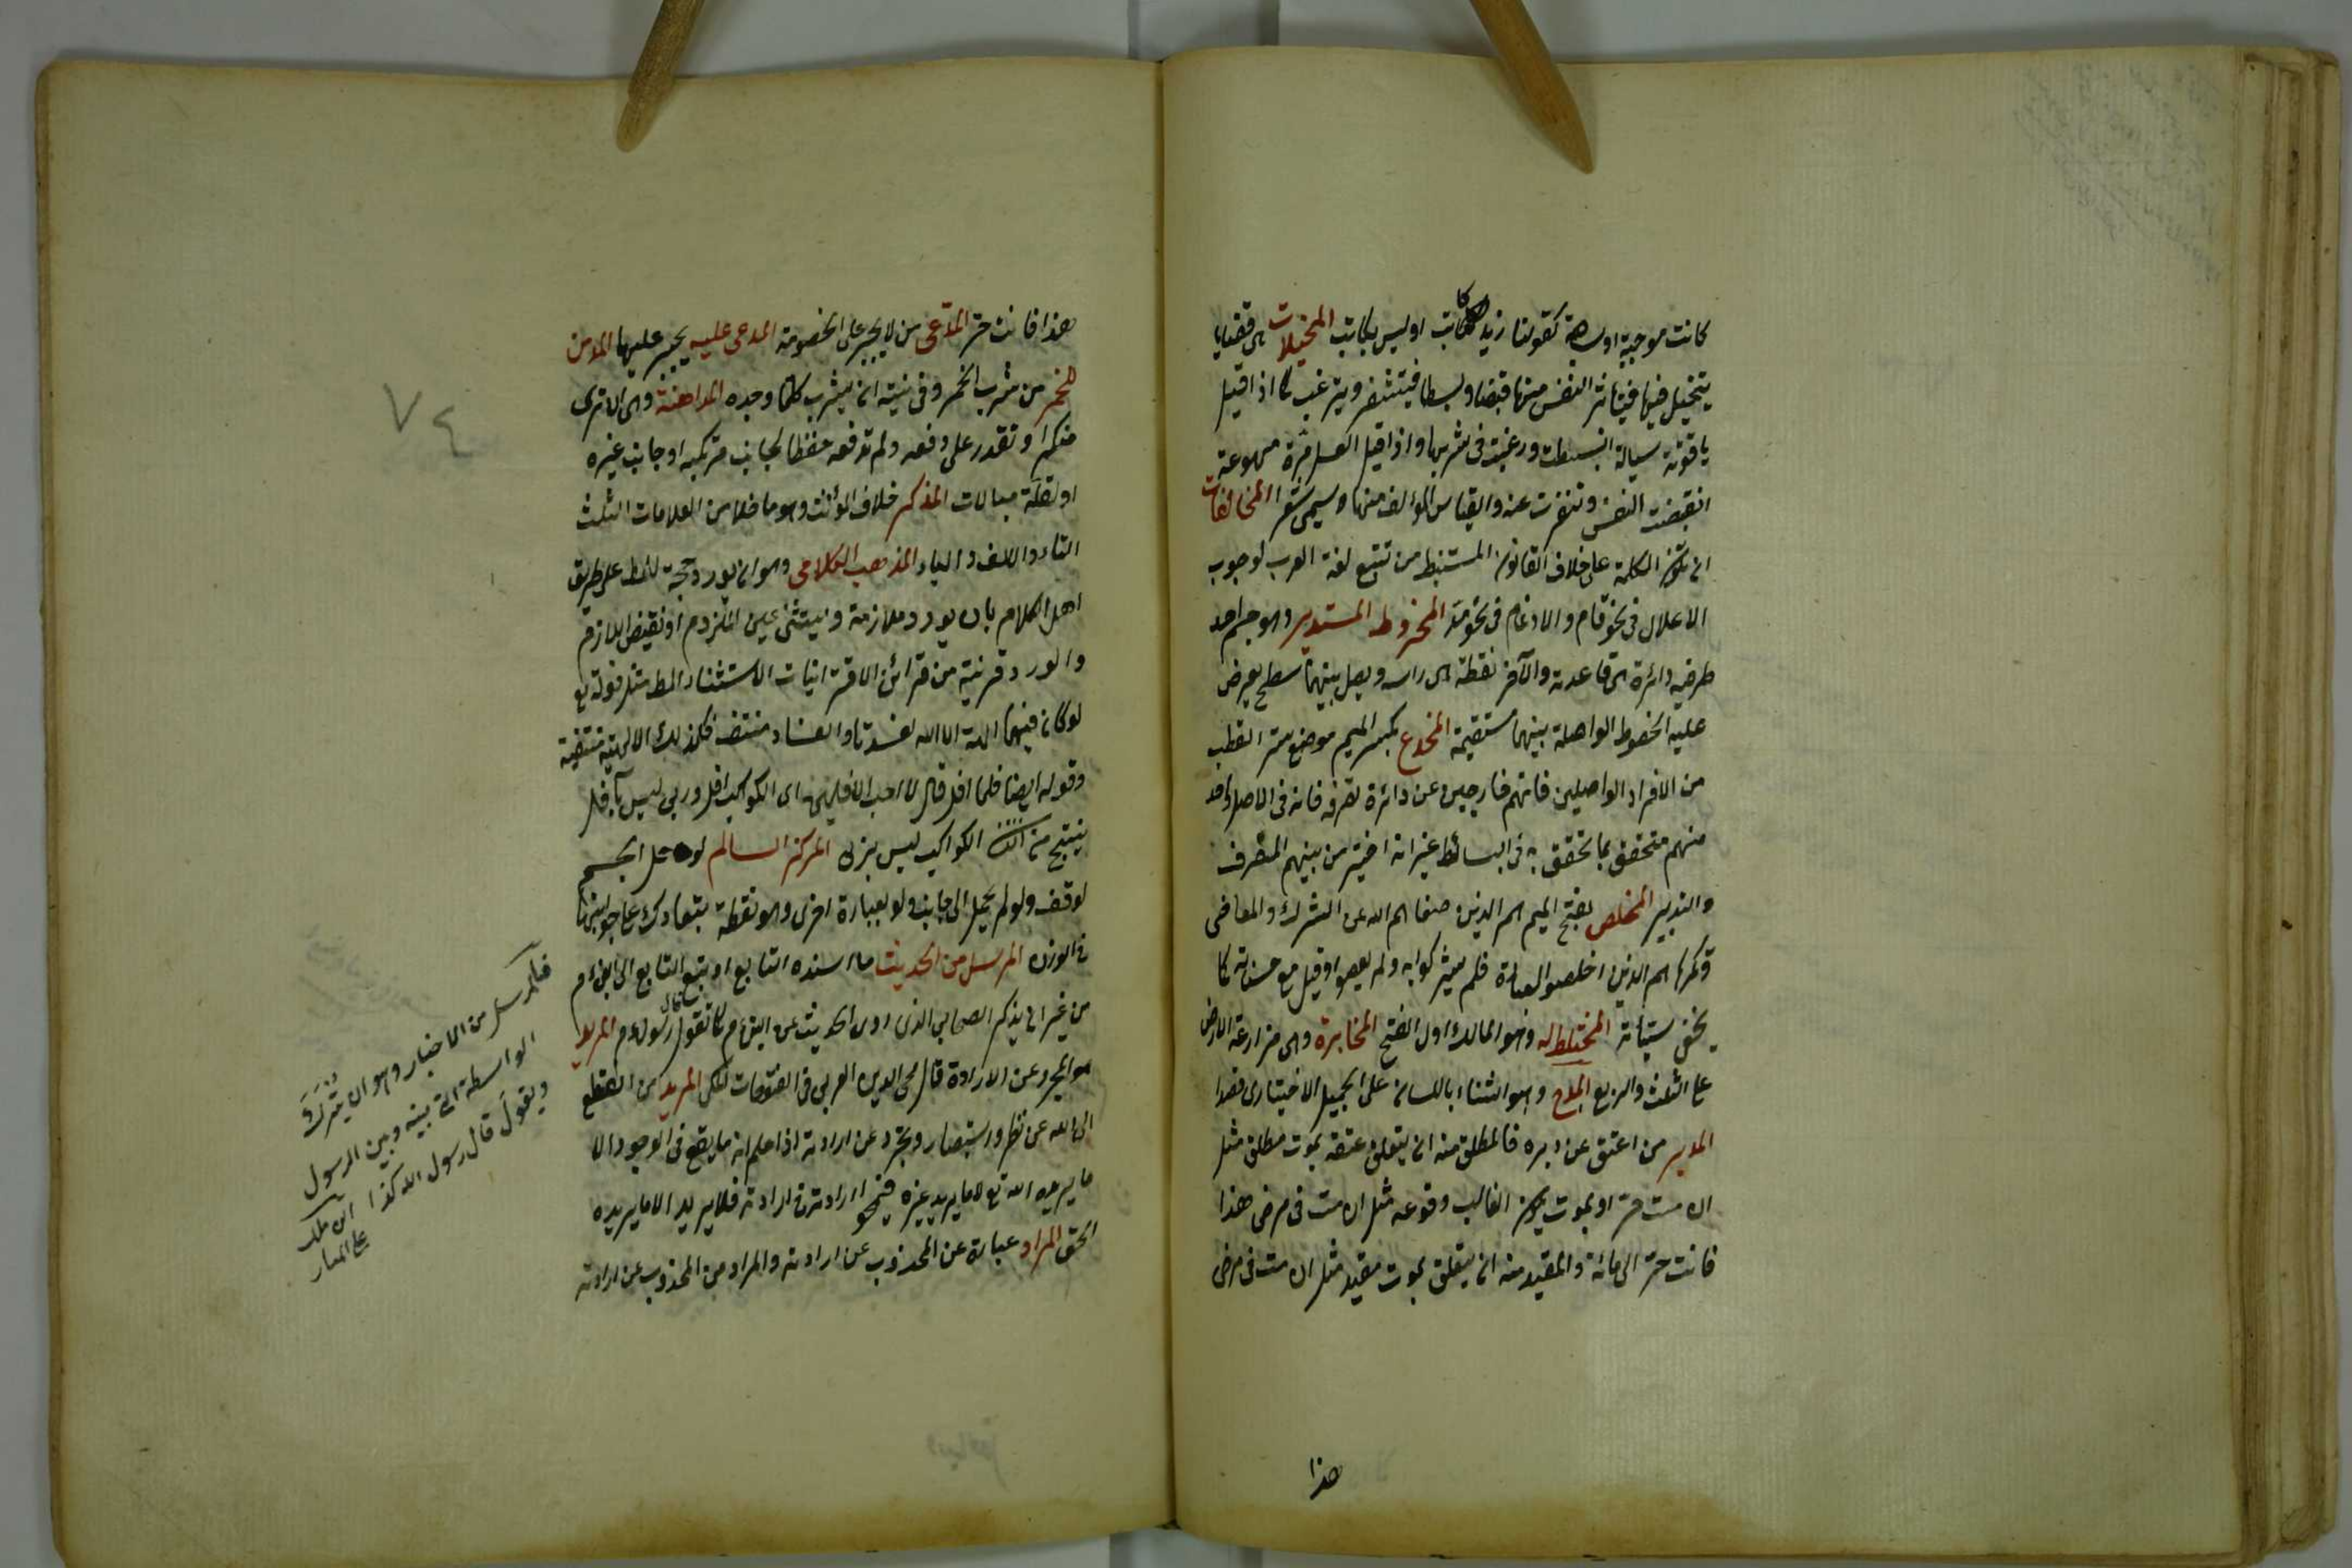 كانت موجبة او سالبة كقولنا زيد كاتب او ليس بكاتب المخيلات هى قضايا
يتخيل فيها فيتاثر النفس منها قبضا وبسطا فيتنفر ويترغب كما اذا قيل
ياقوتة سيالة انبسطت ورغبت فى شربها واذا قيل العسل مرة مهوعة
انقبضت النفس وتنفرت عنه والقياس المؤلف منها يسمى شعرا المخالفات
ان تكون الكلمة على خلاف القانون المستنبط من تتبع لغة العرب لوجوب
الاعلال فى نحو قام والادغام فى نحو مد المخروط المستدير وهو جسم احد
طرفيه دائرة هى قاعدته والآخر نقطة هى راسه ويصل بينهما سطح يعرض
عليه الخطوط الواصلة بينهما مستقيمة المخدع بكسر الميم موضع ستر القطب
من الافراد الواصلين فانهم خارجين عن دائرة تصرفه فانه فى الاصل واحد
منهم متحقق بما تحقق به فى البسائط غير انه اختير من بينهم للتصرف
والتدبير المخلص بفتح الميم هم الذين صفاهم الله عن الشرك والمعاصى
وبكسرها هم الذين اخلصوا العبادة فلم يشركوا به ولم يعصوا وقيل من حسناته كما
يخفى سيئاته المختط له وهو المالك اول الفتح المخابرة وهى مزارعة الارض
على الثلث والربع المدح وهو الثناء باللسان على الجميل الاختيارى قصدا
المدبر من اعتق عن دبره فالمطلق منه ان يتعلق عتقه بموت مطلق مثل
ان مت حر او بموت يكون الغالب وقوعه مثل ان مت فى مرضى هذا
فانت حر الى مائة والمقيد منه ان يتعلق بموت مقيد مثل ان مت فى مرضى
هذا
هذا فانت حر المدعى من لا يجبر على الخصومة المدعى عليه يجبر عليها المدمن
للخمر من شرب الخمر وفى نيته ان يشرب كلما وجده المداهنة وهى الا ترى
منكرا وتقدر على دفعه ولم تدفعه حفظا لجانب مرتكبه او جانب غيره
او لقلة مبالات المذكر خلاف المؤنث وهو ما خلا من العلامات الثلث
التاء والالف والياء المذهب الكلامى وهو ان يورد حجة للمط على طريق
اهل الكلام بان يورد ملازمة ويستثنى عين الملزوم او نقيض اللازم
والورد قرينة من قرائن الاقترانيات الاستثناء المط مثل قوله تع
لو كان فيهما الهة الا الله لفسدتا والفساد منتف فكذلك الالهية منتفية
وقوله ايضا فلما افل قال لا احب الآفلين اى الكواكب افل وربى ليس بآفل
ينتج من الكواكب ليس بربى المركز السالم لو حل الجسم
لوقف ولو لم يميل الى جانب ولو بعبارة اخرى وهو نقطة يتعادل على جوانبها
فى الوزن المرسل من الحديث ما اسنده التابع او تبع التابع الى النبى ع م
من غير ان يذكر الصحابى الذى روى الحديث عن النبى ع م كما تقول قال رسول ع م المريد
هو المجرد عن الارادة قال محى الدين العربى فى الفتوحات المكى المريد من انقطع
الى الله عن نظر واستبصار وتجرد عن ارادته اذا علم انه ما يقع فى الوجود الا
ما يريده الله تع لا ما يريد غيره فيمحو ارادته فى ارادته فلا يريد الا ما يريده
الحق المراد عبارة عن المجذوب عن ارادته والمراد من المجذوب عن ارادته
٧٤
فالمرسل من الاخبار وهو ان يترك
الواسطة التى بينه وبين الرسول
ويقول قال رسول الله كذا ابن ملك
على المنار